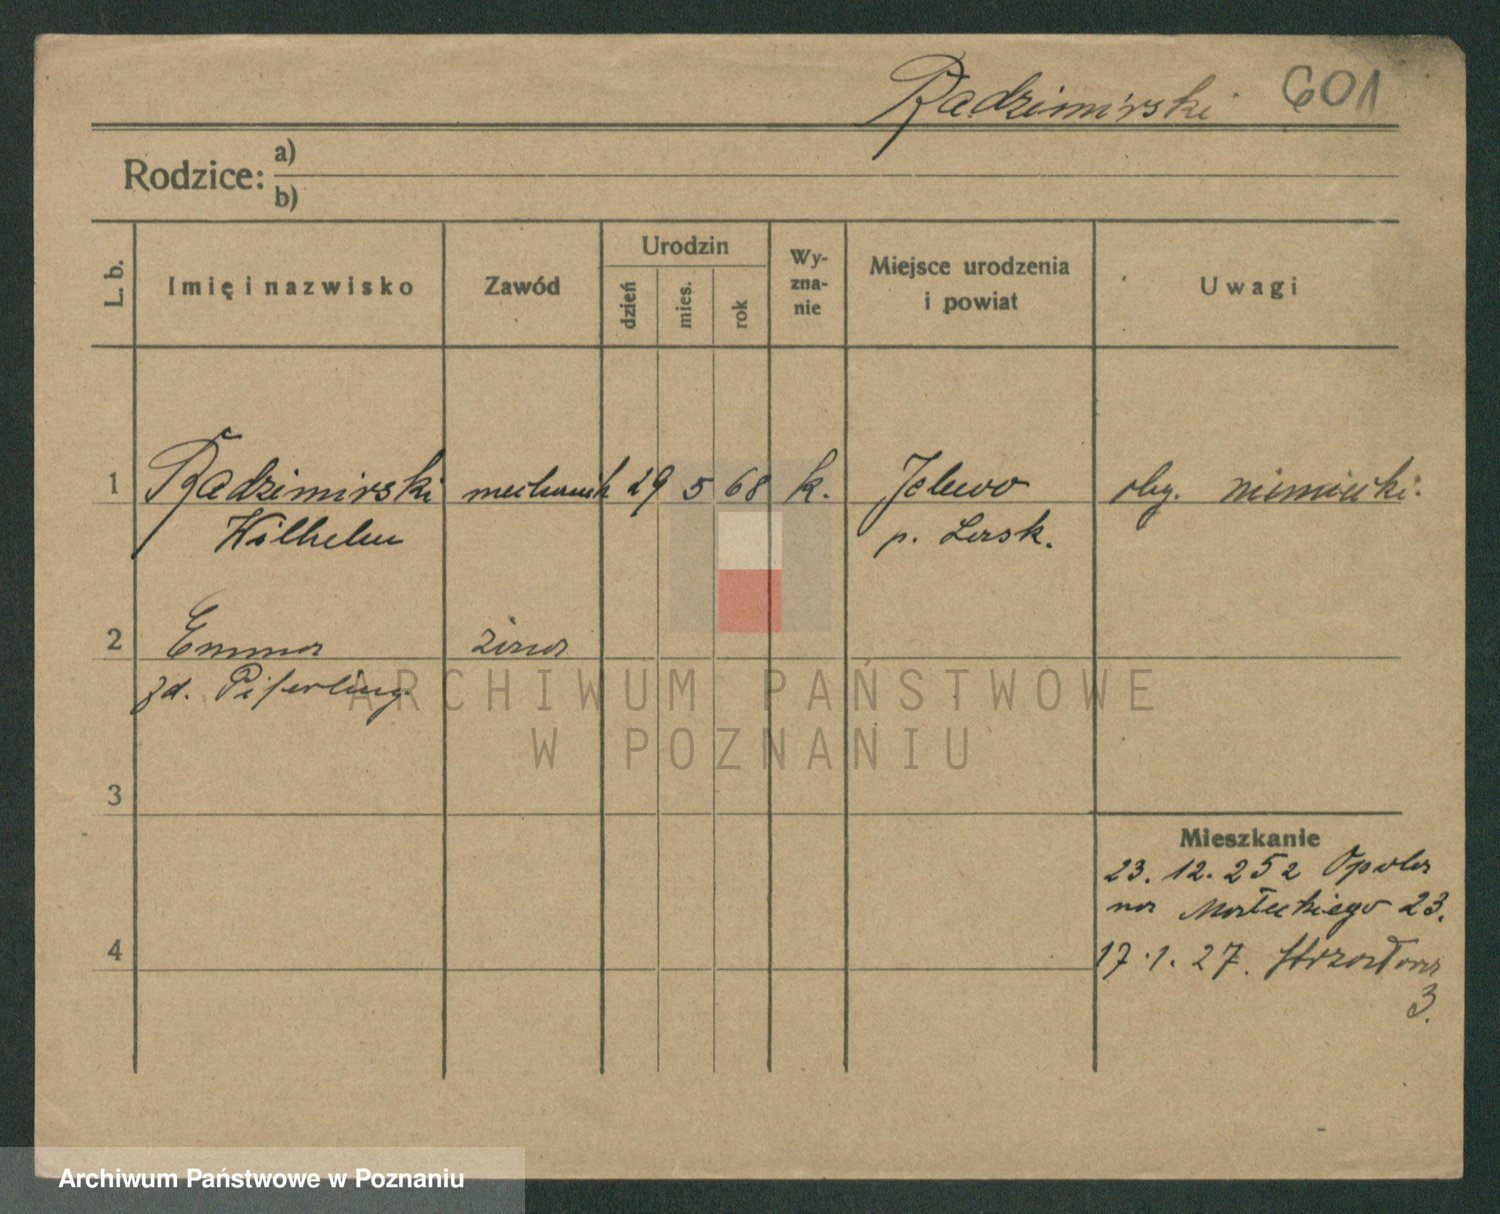 Radzimirski 601
Rodzice: a)
b)
L. b. Imię i nazwisko Zawód Urodzin dzień mies. rok Wyzna-nie Miejsce urodzenia i powiat Uwagi
1 Radzimirski mechanik 29 5 68 k. Jelewo oby. niemiecki.
Wilhelm p.
2 Emma żona
zd. Piferling.
ARCHIWUM PAŃSTWOWE
W POZNANIU
3
Mieszkanie
23. 12. 25 z Opola
na Małeckiego 23.
4 17.1.27. Strzałowa
3.
Archiwum Państwowe w Poznaniu